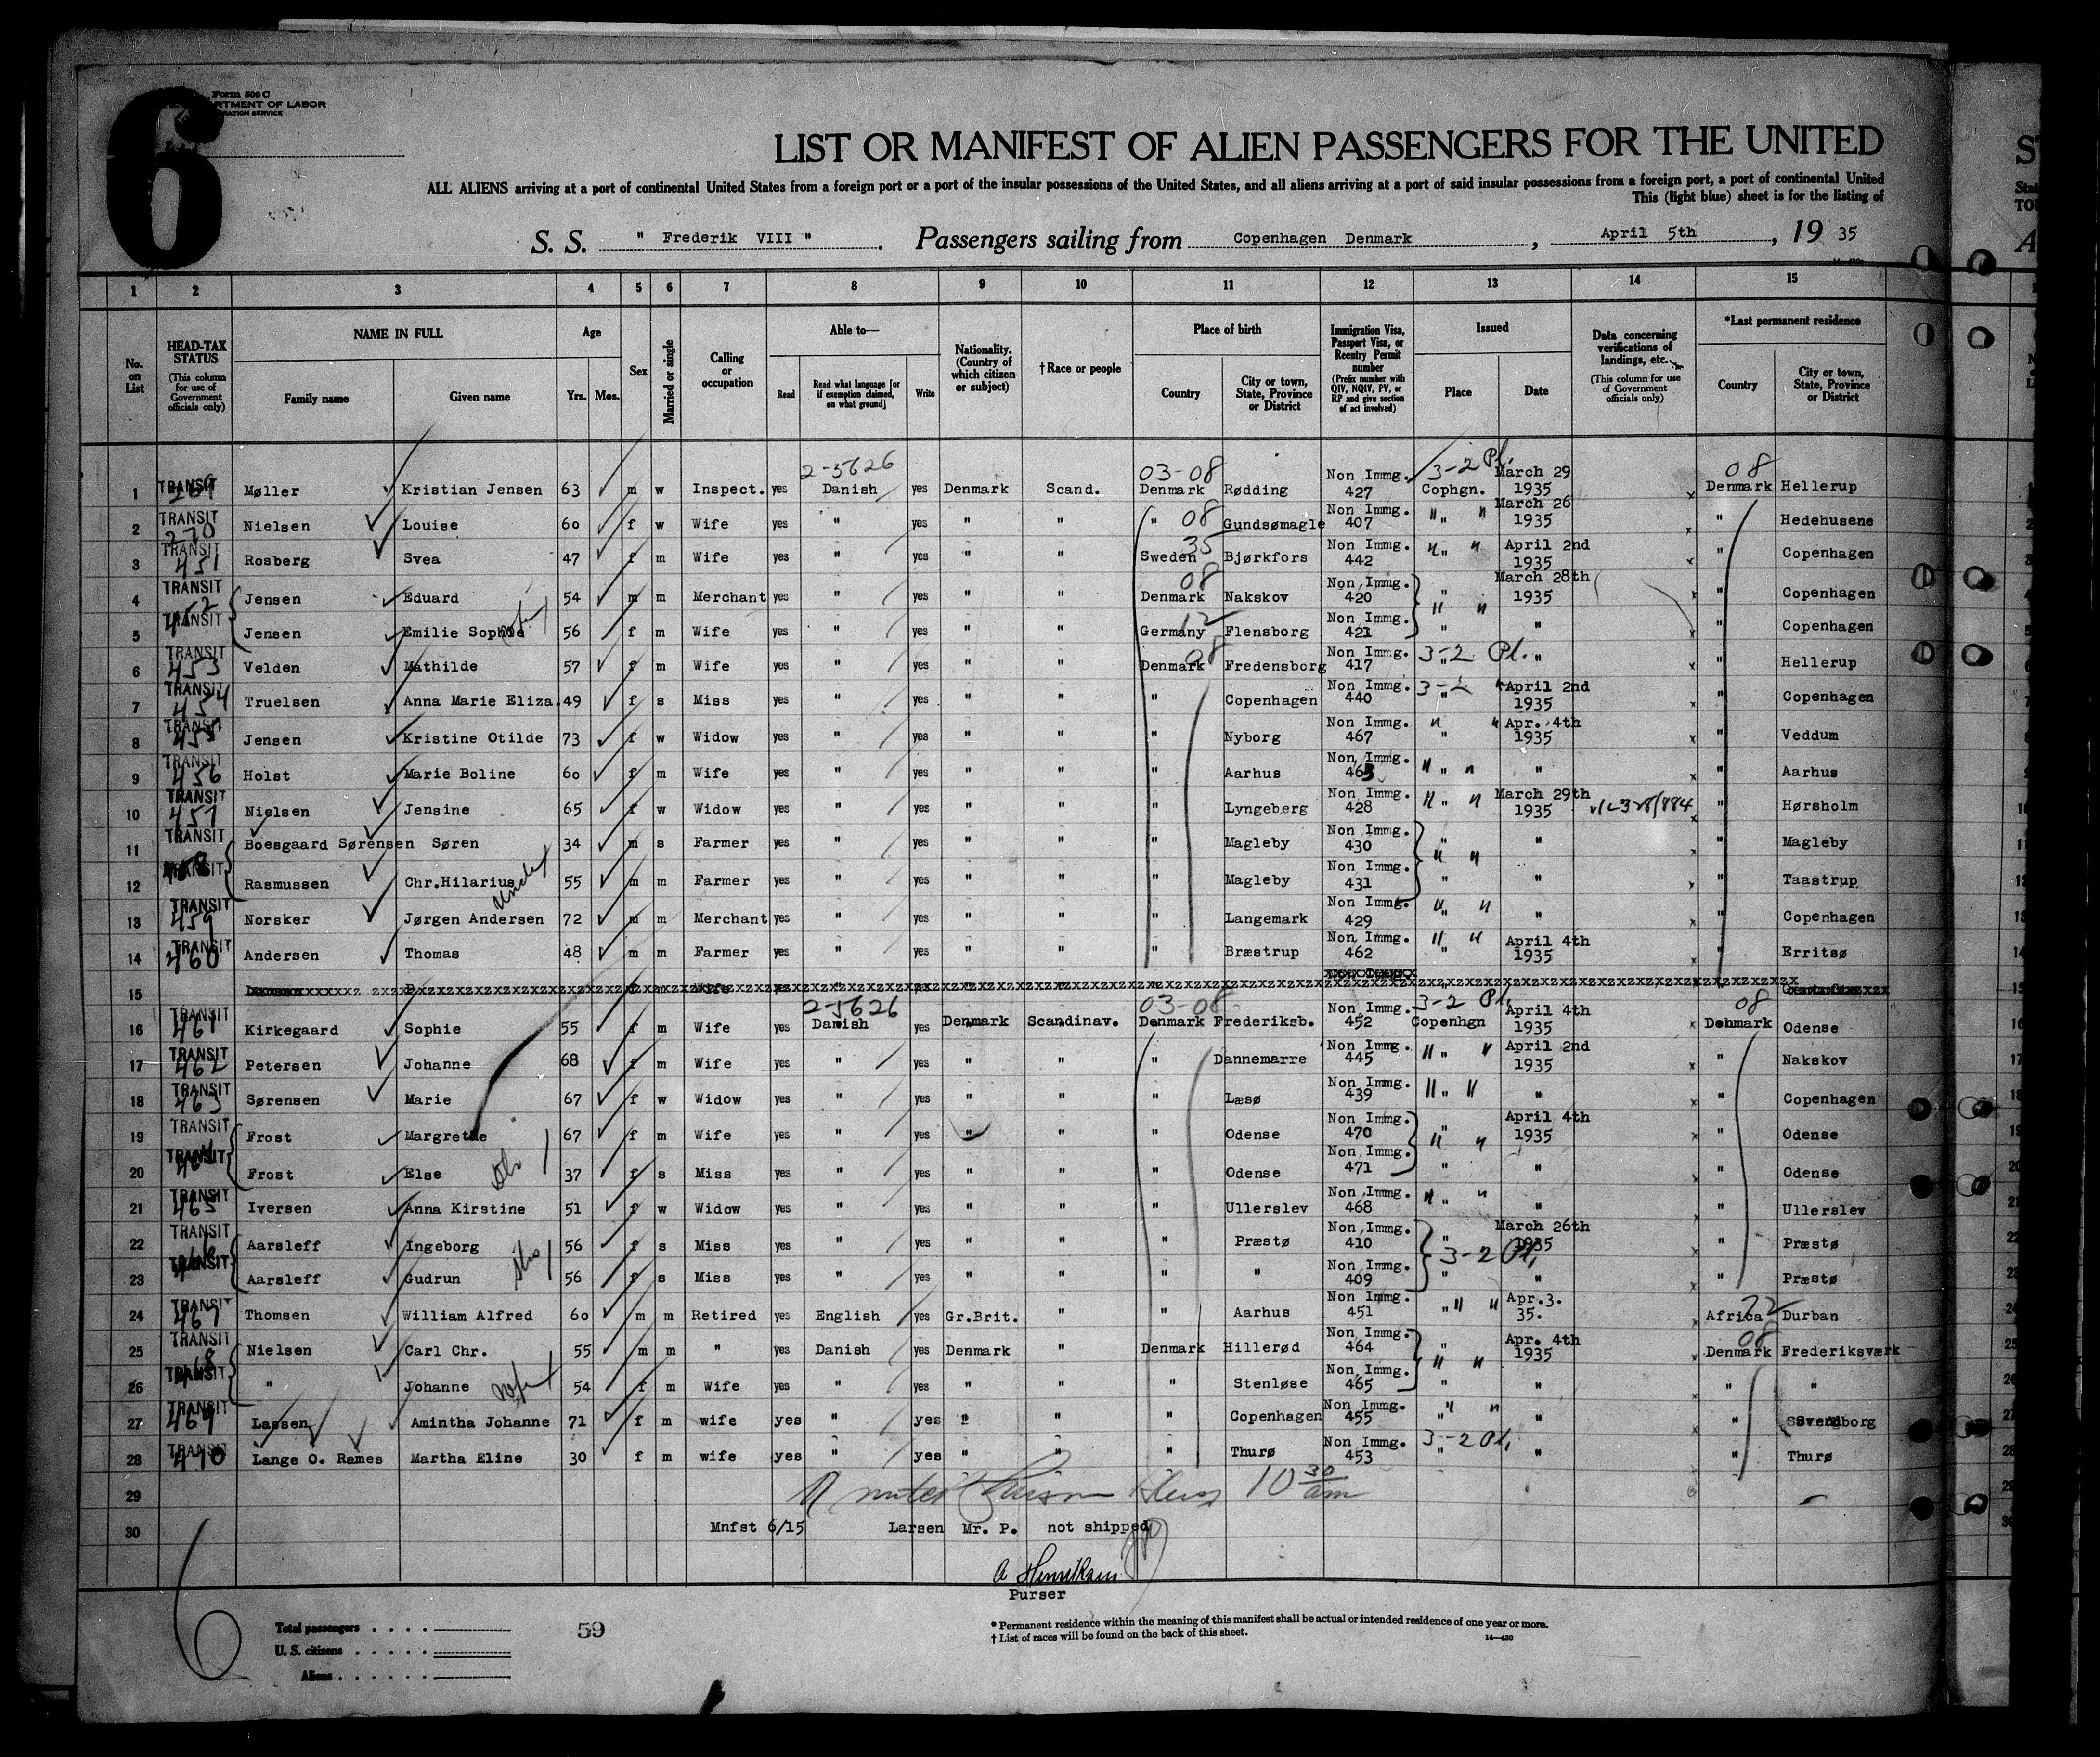 6
Form 500 C
RTMENT OF LABOR
RATION SERVICE
LIST OR MANIFEST OF ALIEN PASSENGERS FOR THE UNITED
ALL ALIENS arriving at a port of continental United States from a foreign port or a port of the insular possessions of the United States, and all aliens arriving at a port of said insular possessions from a foreign port, a port of continental United
This (light blue) sheet is for the listing of
S. S. " Frederik VIII " . Passengers sailing from Copenhagen Denmark , April 5th , 19 35
1 2 3 4 5 6 7 8 9 10 11 12 13 14 15
No. on List
HEAD-TAX STATUS (This column for use of Government officials only)
NAME IN FULL Family name Given name
Age Yrs. Mos.
Sex
Married or single
Calling or occupation
Able to— Read Read what language [or if exemption claimed, on what ground] Write
Nationality. (Country of which citizen or subject)
†Race or people
Place of birth Country City or town, State, Province or District
Immigration Visa, Passport Visa, or Reentry Permit number (Prefix number with QIV, NQIV, PV, or RP and give section of act involved)
Issued Place Date
Data concerning verifications of landings, etc. (This column for use of Government officials only)
*Last permanent residence Country City or town, State, Province or District
2-5626 03-08 3-2 Pl. 08
1 TRANSIT Møller Kristian Jensen 63 m w Inspect. yes Danish yes Denmark Scand. Denmark Rødding Non Immg. 427 Cophgn. March 29 1935 x Denmark Hellerup
2 TRANSIT 270 Nielsen Louise 60 f w Wife yes " yes " " " 08 Gundsømagle Non Immg. 407 " " March 26 1935 x " Hedehusene
3 TRANSIT 451 Rosberg Svea 47 f m Wife yes " yes " " Sweden 35 Bjørkfors Non Immg. 442 " " April 2nd 1935 x " Copenhagen
4 TRANSIT 452 Jensen Eduard 54 m m Merchant yes " yes " " Denmark 08 Nakskov Non Immg. 420 " March 28th 1935 x " Copenhagen
5 TRANSIT Jensen Emilie Sophie wife 56 f m Wife yes " yes " " Germany 12 Flensborg Non Immg. 421 " " " Copenhagen
6 TRANSIT 453 Velden Mathilde 57 f m Wife yes " yes " " Denmark 08 Fredensborg Non Immg. 417 3-2 Pl. " " x " Hellerup
7 TRANSIT 454 Truelsen Anna Marie Eliza. 49 f s Miss yes " yes " " " Copenhagen Non Immg. 440 3-2 " April 2nd 1935 x " Copenhagen
8 TRANSIT 455 Jensen Kristine Otilde 73 f w Widow yes " yes " " " Nyborg Non Immg. 467 " Apr. 4th 1935 x " Veddum
9 TRANSIT 456 Holst Marie Boline 60 f m Wife yes " yes " " " Aarhus Non Immg. 463 " " x " Aarhus
10 TRANSIT 457 Nielsen Jensine 65 f w Widow yes " yes " " " Lyngeberg Non Immg. 428 " March 29th 1935 x " Hørsholm
11 TRANSIT Boesgaard Sørensen Søren 34 m s Farmer yes " yes " " " Magleby Non Immg. 430 " " x " Magleby
12 TRANSIT 458 Rasmussen Chr.Hilarius uncle 55 m m Farmer yes " yes " " " Magleby Non Immg. 431 " " x " Taastrup
13 TRANSIT 459 Norsker Jørgen Andersen 72 m m Merchant yes " yes " " " Langemark Non Immg. 429 " " x " Copenhagen
14 TRANSIT 460 Andersen Thomas 48 m m Farmer yes " yes " " " Bræstrup Non Immg. 462 " April 4th 1935 x " Erritsø
15
2-5626 03-08 3-2 Pl. 08
16 TRANSIT 461 Kirkegaard Sophie 55 f m Wife yes Danish yes Denmark Scandinav. Denmark Frederiksb. Non Immg. 452 Copenhgn April 4th 1935 x Denmark Odense
17 TRANSIT 462 Petersen Johanne 68 f m Wife yes " yes " " " Dannemarre Non Immg. 445 " April 2nd 1935 x " Nakskov
18 TRANSIT 463 Sørensen Marie 67 f w Widow yes " yes " " " Læsø Non Immg. 439 " " x " Copenhagen
19 TRANSIT Frost Margrethe 67 f m Wife yes " yes " " " Odense Non Immg. 470 " April 4th 1935 x " Odense
20 TRANSIT 464 Frost Else 37 f s Miss yes " yes " " " Odense Non Immg. 471 " " x " Odense
21 TRANSIT 465 Iversen Anna Kirstine 51 f w Widow yes " yes " " " Ullerslev Non Immg. 468 " " x " Ullerslev
22 TRANSIT Aarsleff Ingeborg 56 f s Miss yes " yes " " " Præstø Non Immg. 410 " March 26th 1935 x " Præstø
23 TRANSIT Aarsleff Gudrun 56 f s Miss yes " yes " " " " Non Immg. 409 3-2 Pl. " " x " Præstø
24 TRANSIT 467 Thomsen William Alfred 60 m m Retired yes English yes Gr.Brit. " " Aarhus Non Immg. 451 " Apr.3. 35. x Africa 72 Durban
25 TRANSIT Nielsen Carl Chr. 55 m m " yes Danish yes Denmark " Denmark Hillerød Non Immg. 464 " Apr. 4th 1935 x Denmark 08 Frederiksværk
26 TRANSIT 468 " Johanne wife 54 f m Wife yes " yes " " " Stenløse Non Immg. 465 " " x " "
27 TRANSIT 469 Lassen Amintha Johanne 71 f m wife yes " yes " " " Copenhagen Non Immg. 455 " " x " Svendborg
28 TRANSIT 470 Lange O. Rames Martha Eline 30 f m wife yes " yes " " " Thurø Non Immg. 453 3-2 Pl. " " " Thurø
29 10 30 am
30 Mnfst 6/15 Larsen Mr. P. not shipped
Purser
6
Total passengers
U. S. citizens
Aliens
59
* Permanent residence within the meaning of this manifest shall be actual or intended residence of one year or more.
† List of races will be found on the back of this sheet.
14—430